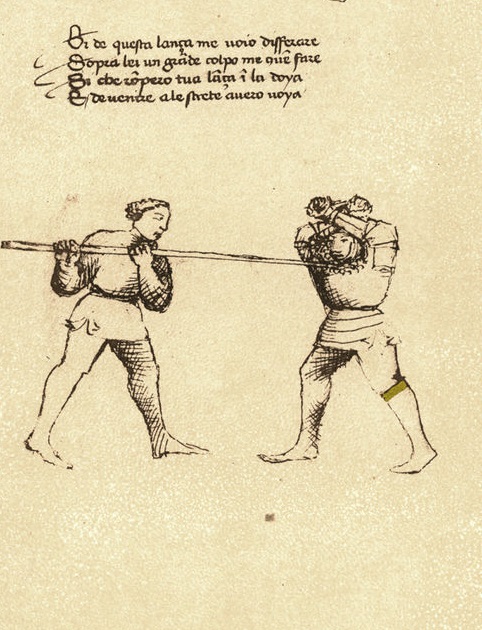 Si de questa lança me voio differare
Sopra lei un grãde colpo me quẽ fare
Si che rõpero tua lãça ĩ la doya
E de venire ale strete avero voya